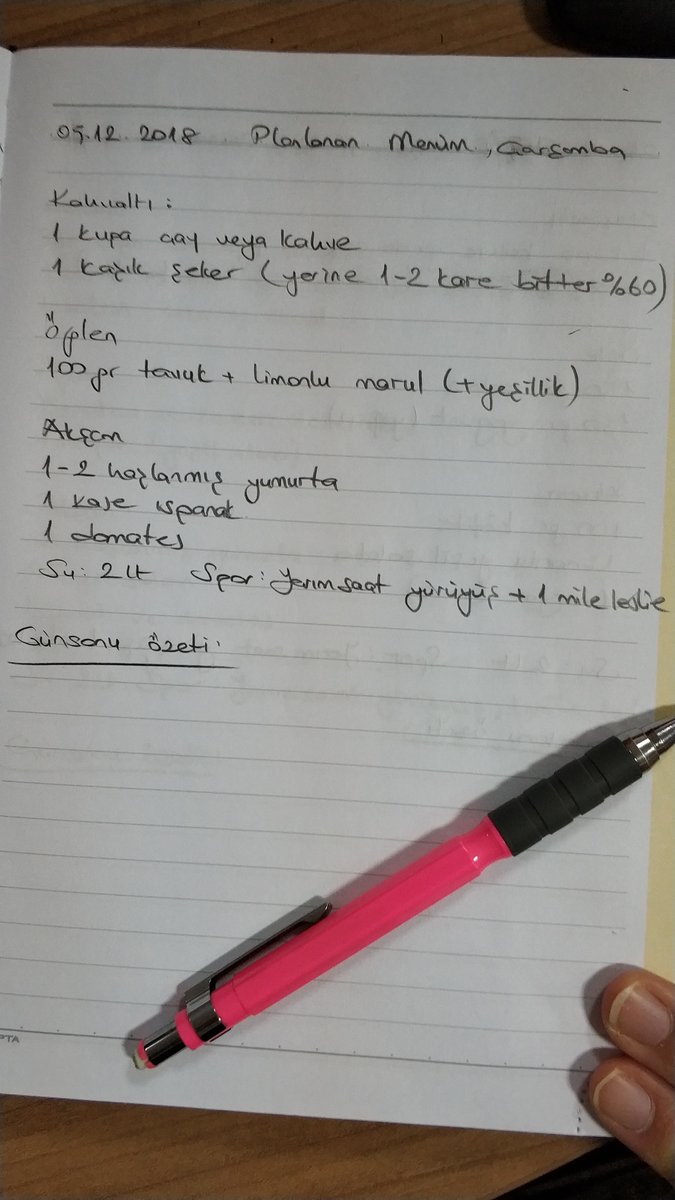 05.12.2018 Planlanan Menüm, Çarşamba
Kahvaltı:
1 kupa çay veya kahve
1 kaşık şeker (yerine 1-2 kare bitter %60)
Öğlen
100 gr tavuk + limonlu marul (+yeşillik)
Akşam
1-2 haşlanmış yumurta
1 kase ıspanak
1 domates
Su: 2 lt Spor: Yarım saat yürüyüş + 1 mile leslie
Günsonu özeti:
PTA